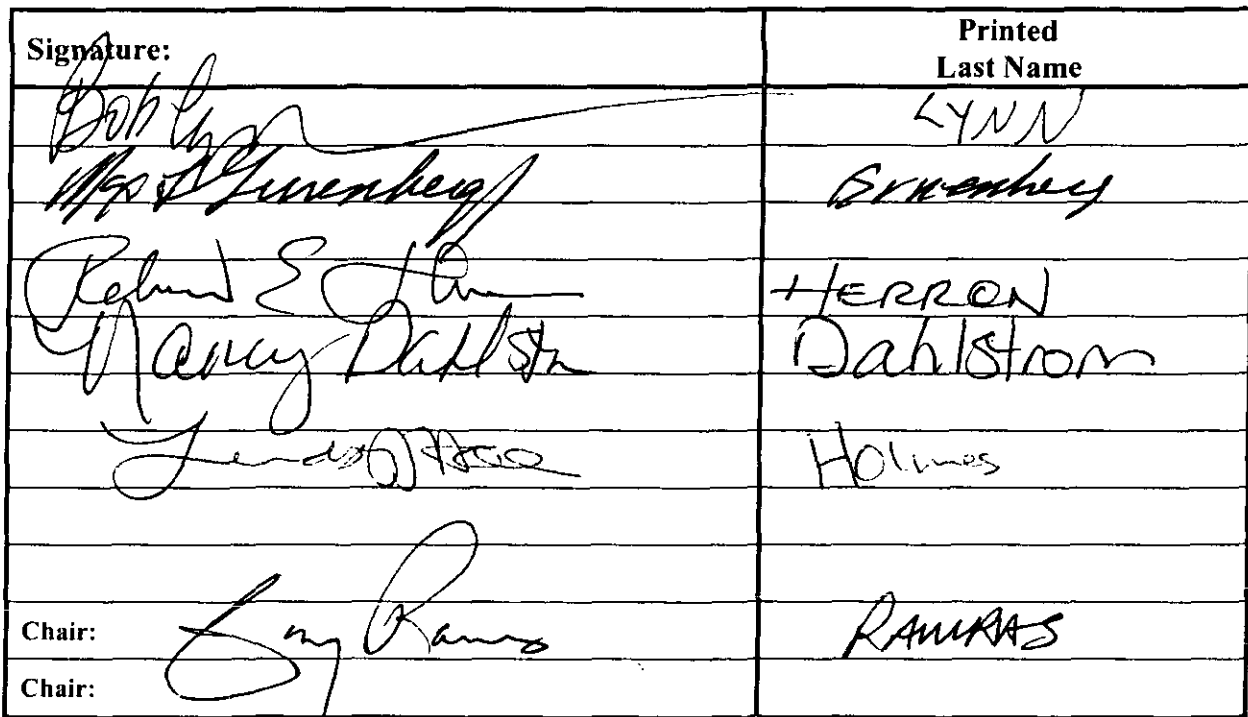 Signature: Printed
Last Name
Bob Lynn LYNN
Gruenberg Gruenberg
Robert E HERRON
Nancy Dahlstrom Dahlstrom
Holmes
Chair: Jay Ramras RAMRAS
Chair: